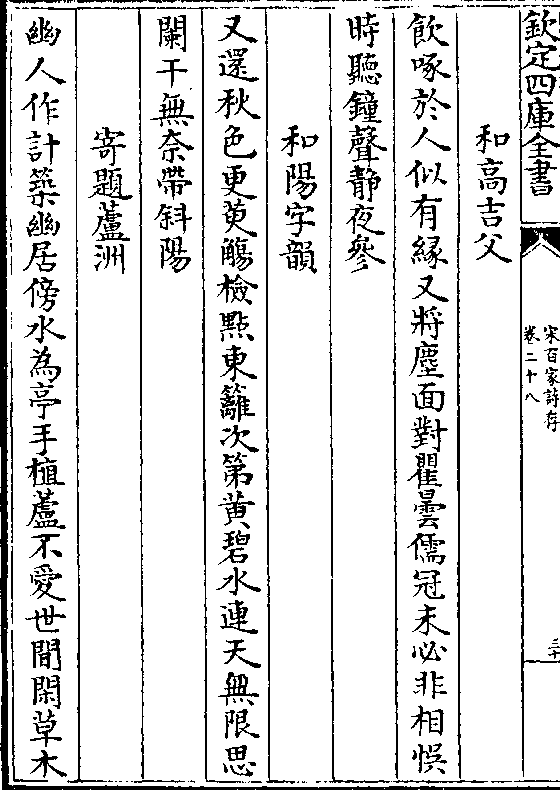 欽定四庫全書
宋百家詩存
卷二十八
三十
和高吉父
飲啄於人似有緣又將塵面對瞿曇儒冠未必非相悞
時聽鐘聲静夜參
和陽字韻
又還秋色更萸觴檢㸃東籬次第黄碧水連天無限思
闌干無奈帶斜陽
寄題蘆洲
幽人作計築幽居傍水為亭手植蘆不愛世間閑草木